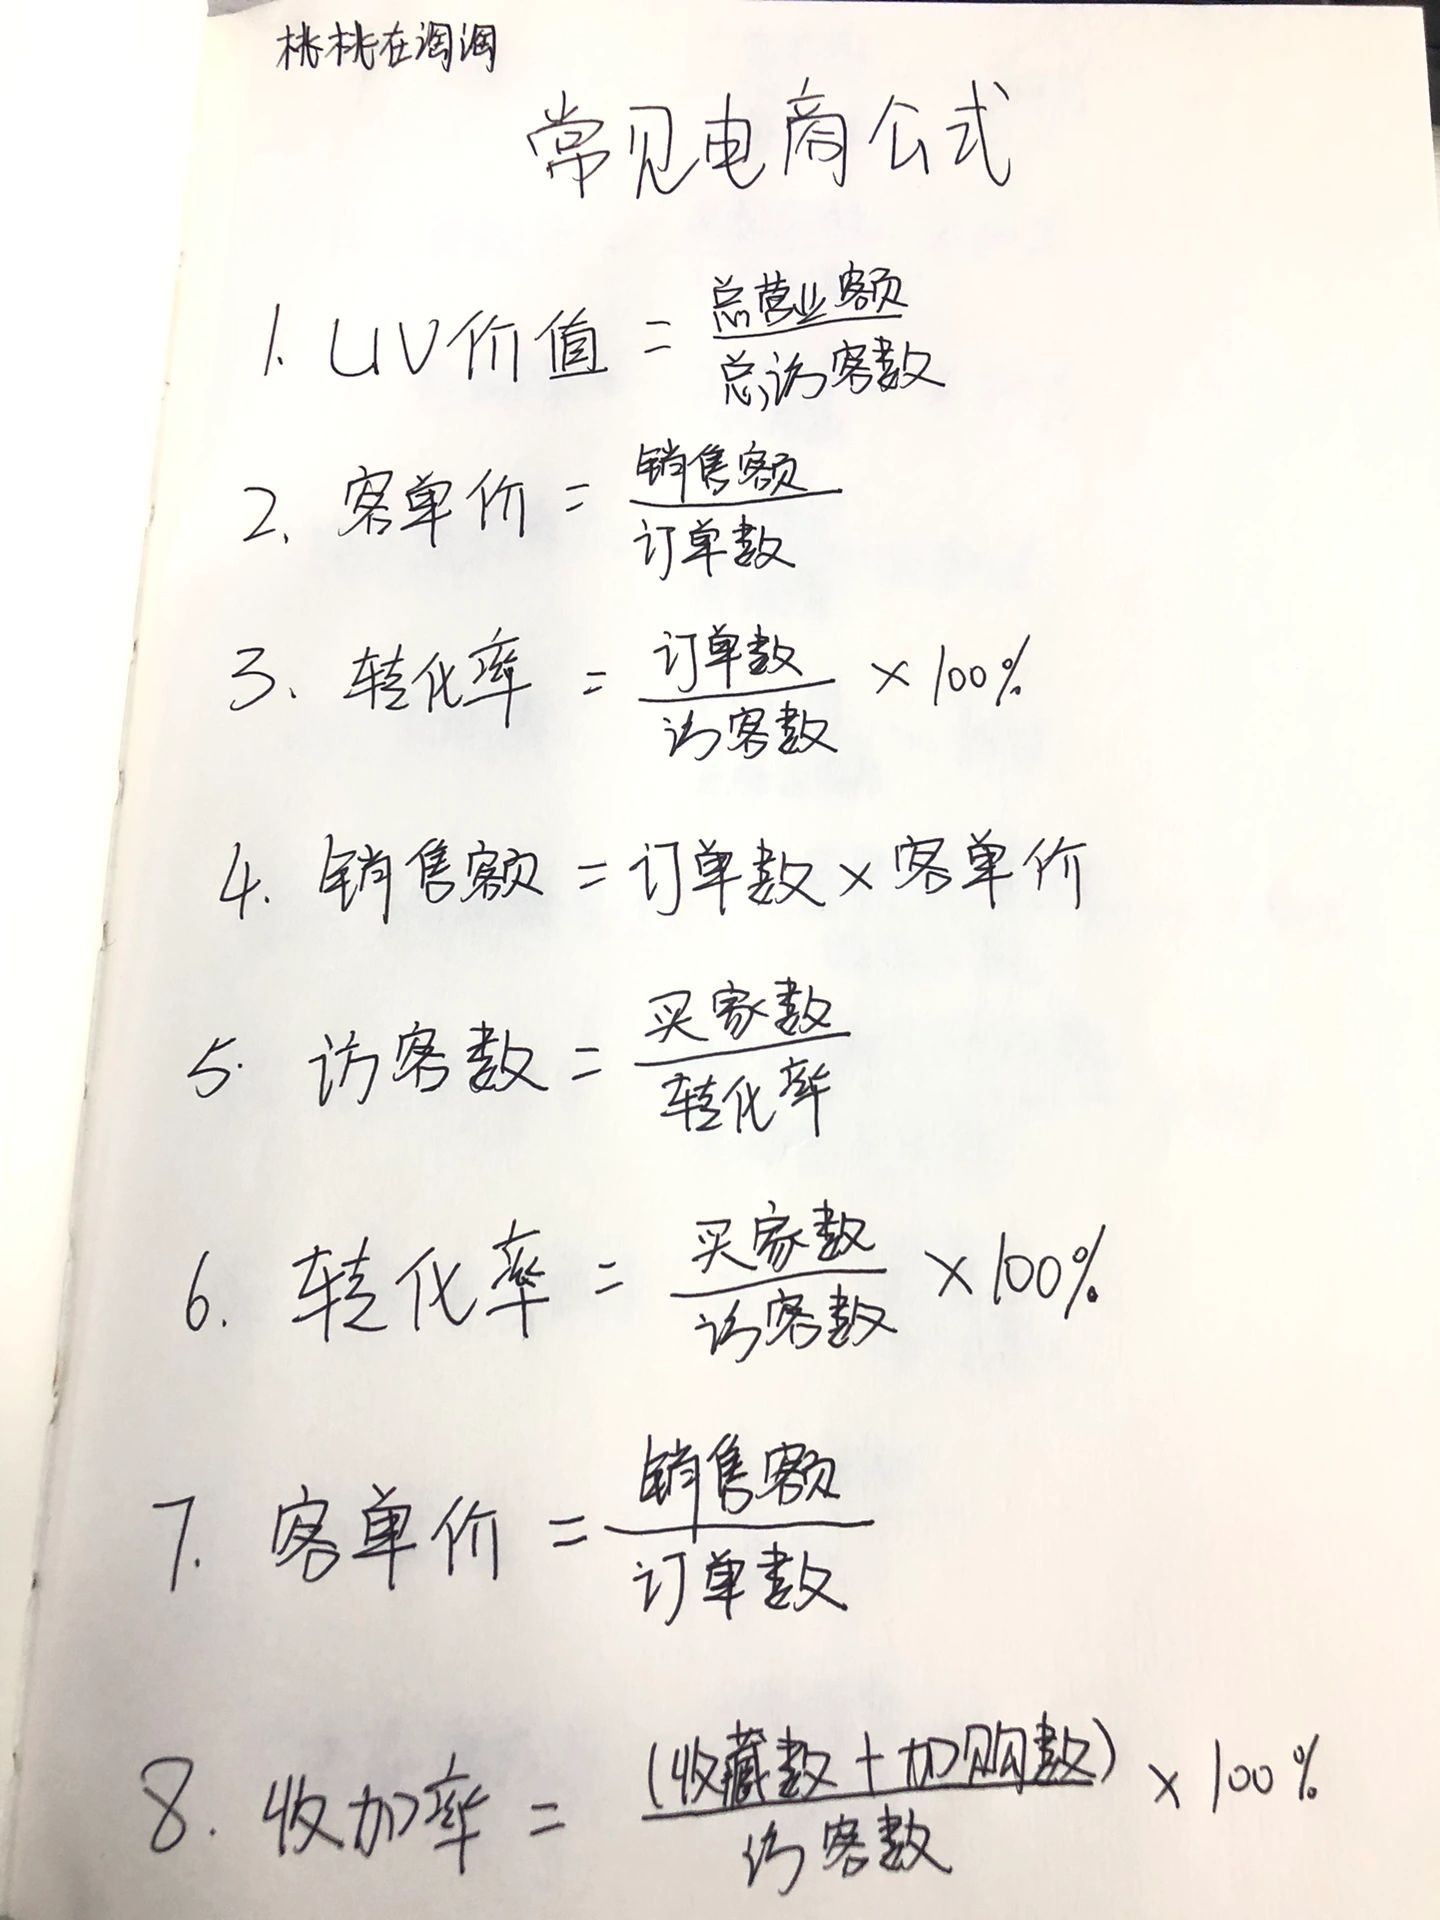 桃桃在淘淘
常见电商公式
1. UV价值 = 总营业额
总访客数
2. 客单价 = 销售额
订单数
3. 转化率 = 订单数 × 100%
访客数
4. 销售额 = 订单数 × 客单价
5. 访客数 = 买家数
转化率
6. 转化率 = 买家数 × 100%
访客数
7. 客单价 = 销售额
订单数
8. 收加率 = (收藏数 + 加购数) × 100%
访客数